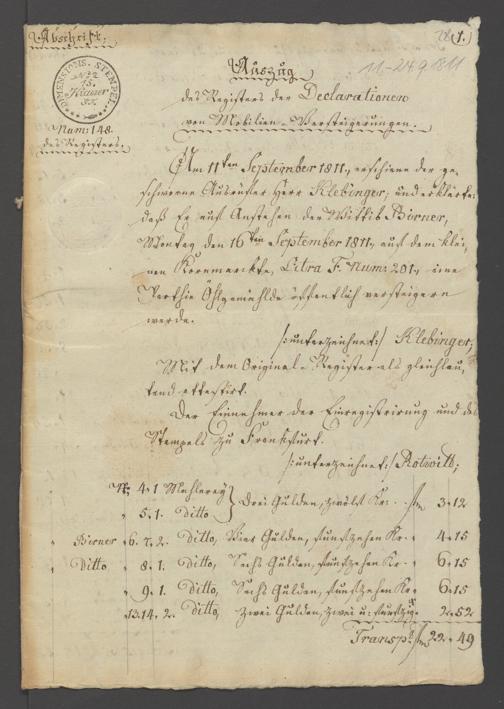 Abschrift.
(1.)
11-24.9.1811
DIMENSIONS. STEMPEL.
No 2
15.
Kreuzer
Num: 148.
des Registers.
Auszug
des Registers der Declarationen
von Mobilien-Versteigerungen.
Am 11ten September 1811, erschiene der ge-
schworne Ausrufer Herr Klebinger, und erklärte:
daß Er auf Anstehen der Wittib Börner,
Montag den 16ten September 1811, auf dem klei-
nen Kornmarckte, Litra F. Num: 201, eine
Parthie Öhlgemählde öffentlich versteigern
werde.
/:unterzeichnet:/ Klebinger,
Mit dem Original-Register als gleichlau-
tend attestirt.
Der Einnehmer der Einregistrirung und des
Stempels zu Frankfurt.
/:unterzeichnet:/
No 4. 1 Mahlerey } Drei Gulden, zwölf Kr. 3.12
" 5. 1. Ditto
" Börner " 6. 7. 2. Ditto, Vier Gulden, funfzehen Kr. 4.15
" Ditto " 8. 1. Ditto, Sechs Gulden, funfzehen Kr. 6.15
" 9. 1. Ditto, Sechs Gulden, funfzehen Kr. 6.15
" 13.14. 2. Ditto, Zwei Gulden, zwei u: funfzig 2.52
Transpt. 22.49